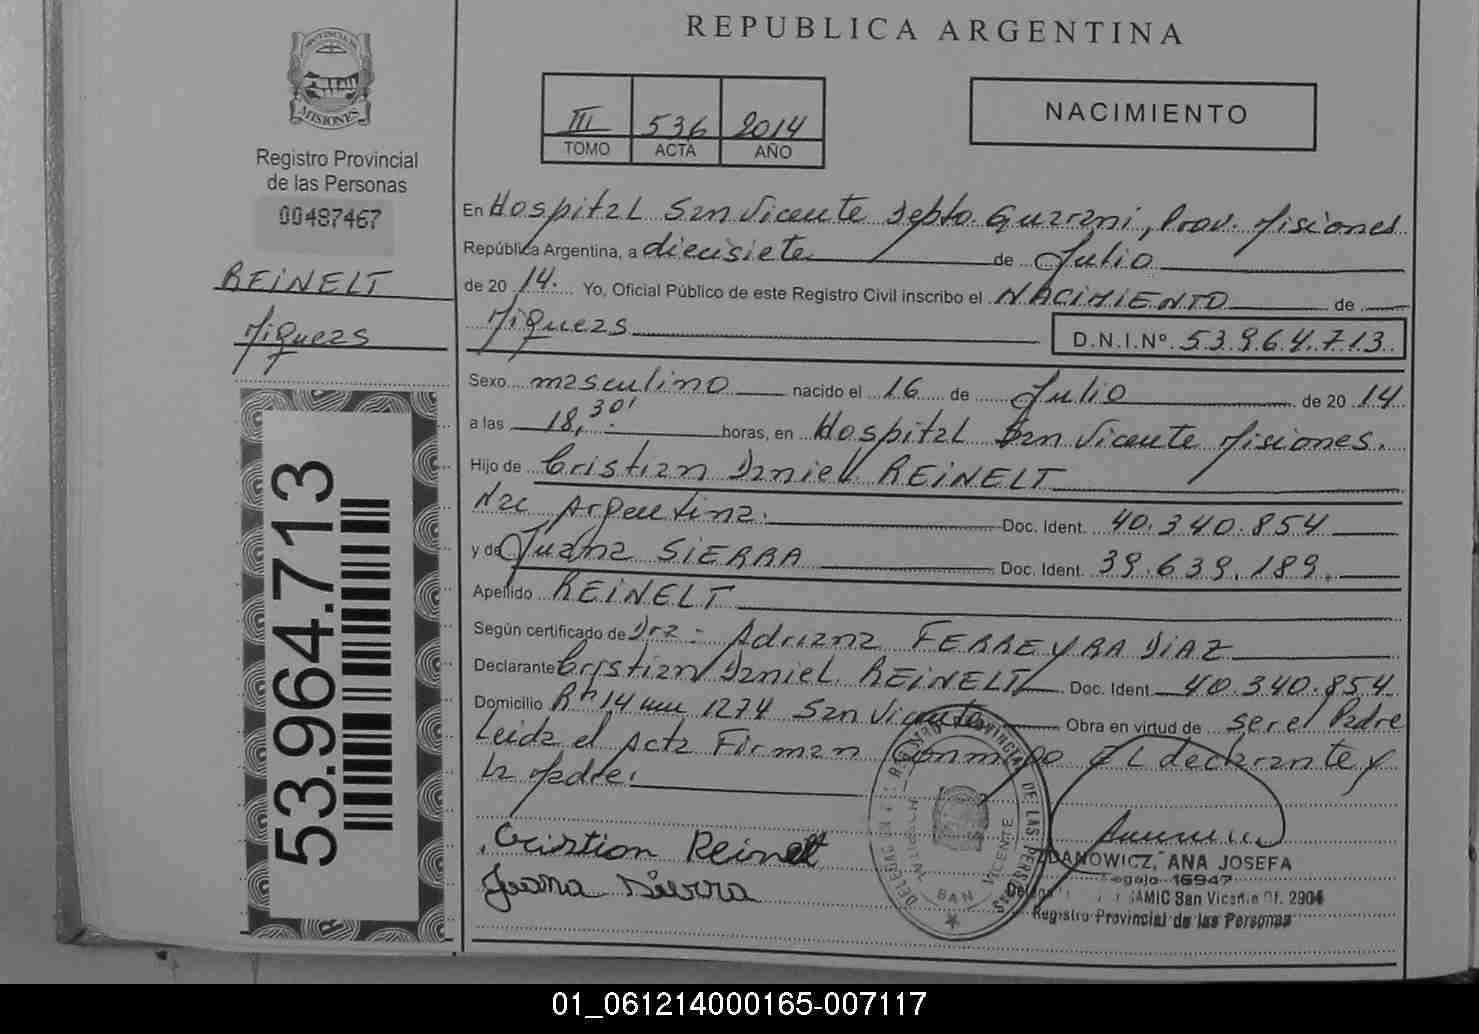 REPUBLICA ARGENTINA
PROVINCIA DE
MISIONES
Registro Provincial
de las Personas
00487467
REINELT
Miqueas
53.964.713
III 536 2014
TOMO ACTA AÑO
NACIMIENTO
En Hospital San Vicente Depto. Guarani, Prov. Misiones
República Argentina, a diecisiete de Julio
de 20 14. Yo, Oficial Público de este Registro Civil inscribo el NACIMIENTO de
Miqueas D.N.I.Nº. 53.964.713
Sexo masculino nacido el 16 de Julio de 20 14
a las 18,30' horas, en Hospital San Vicente Misiones.
Hijo de Cristian Daniel REINELT
Nac Argentina. Doc. Ident. 40.340.854
y de Juana SIERRA Doc. Ident. 39.639.189.
Apellido REINELT
Según certificado de Dra - Adriana FERREYRA DIAZ
Declarante Cristian Daniel REINELT Doc. Ident. 40.340.854
Domicilio Rn 14 1274 San Vicente Obra en virtud de ser el Padre
Leida el Acta Firman Conmigo El declarante y
La Madre.
Cristian Reinelt
Juana Sierra
REGISTRO PROVINCIAL DE LAS PERSONAS
SAN VICENTE
ZDANOWICZ, ANA JOSEFA
Legajo 16947
CAMIC San Vicente Of. 2904
Registro Provincial de las Personas
01_061214000165-007117